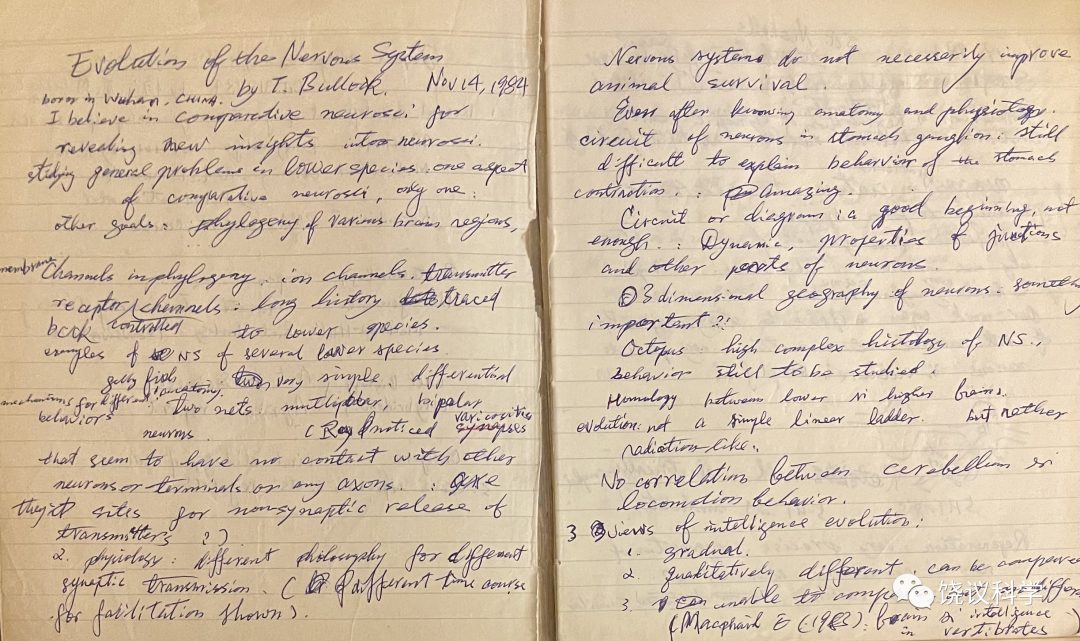 Evolution of the Nervous System
by T. Bullock. Nov 14, 1984
born in Wuhan, CHINA.
I believe in comparative neurosci for
revealing new insights into neurosci.
studying general problems in lower species: one aspect
of comparative neurosci, only one:
other goals: phylogeny of various brain regions,
membrane
Channels in phylogeny. ion channels. transmitter
receptor/channels: long history traced
back controlled to lower species.
examples of NS of several lower species.
jelly fish: very simple. differential
mechanisms for different behaviors
anatomy: two nets: multipolar, bipolar
neurons. ( noticed varicosities
that seem to have no contact with other
neurons or terminals or any axons. : are
they sites for nonsynaptic release of
transmitters ?)
2. physiology: different philosophy for different
synaptic transmission. ( different time course
for facilitation shown).
Nervous systems do not necessarily improve
animal survival.
Even after knowing anatomy and physiology.
circuit of neurons in stomach ganglion: still
difficult to explain behavior of the stomach
contraction. : Amazing.
Circuit or diagram is a good beginning, not
enough. : Dynamic, properties of junctions
and other parts of neurons.
3 dimensional geography of neurons. somehow
important?!
Octopus high complex histology of NS.,
behavior still to be studied.
Homology between lower & higher brains.
evolution: not a simple linear ladder. but rather
radiation-like.
No correlation between cerebellum &
locomotion behavior.
3 views of intelligence evolution:
1. gradual.
2. qualitatively different, can be compared
3. unable to
(Macphail E (1983): brain & intelligence
in vertibrates)
饶议科学